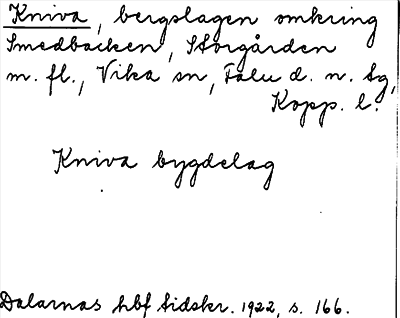 Kniva, bergslagen omkring
Smedbacken, Storgården
m. fl., Vika sn, Falu d. n. tg,
Kopp. l.
Kniva bygdelag
Dalarnas hbf tidskr. 1922, s. 166.